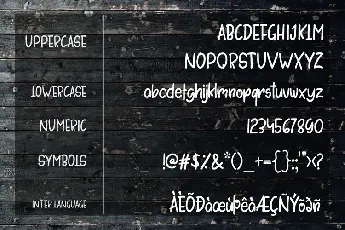 UPPERCASE
ABCDEFGHIJKLM
NOPQRSTUVWXYZ
LOWERCASE
abcdefghijklmnopqrstuvwxyz
NUMERIC
1234567890
SYMBOLS
!@#$%&*()_+={}:;'"><?
INTER LANGUAGE
ÀÈÕÐàœúþêåÆÇÑÝõən